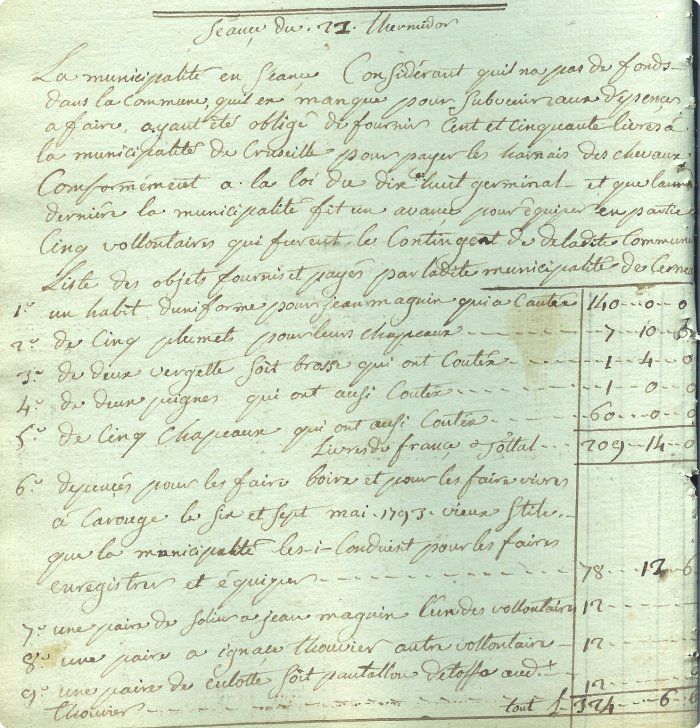 Séance du 22 thermidor
La municipalité en Séance Considérant quil na pas de fonds
dans la Commune, quil en manque pour Subvenir aux depences
a faire, ayant été obligé de fournir Cent et Cinquante livres à
la municipalité de Cruseille pour payer les harnais des chevaux
Conformément a la loi du dix huit germinal et que lannée
dernière la municipalité fit un avance pour équiper en partie
Cinq vollontaires qui furent le Contingent de deladite Commune
Liste des objets fournis et payés par ladite municipalité de Cernex
1.° un habit duniforme pour jean maguin qui a Couter 140 - 0 - 0
2.° de Cinq plumets pour leurs chapeaux 7 - 10
3.° de deux vergette Soit brosse qui ont Couter 1 - 4 - 0
4.° de deux peignes qui ont ausi Couter 1 - 0 - 0
5.° de Cinq Chapeaux qui ont ausi Couter 60 - 0 - 0
Livres de france Tottal 209 - 14 - 0
6.° depences pour les faire boire et pour les faire vivres
à Carouge le Six et Sept mai 1793 vieux Stile
que la municipalité les-i-Conduisit pour les faires
enregistrer et équiper 78 - 12 - 6
7.° une paire de Solier a jean maguin l'un des vollontaires 12
8.° une paire a ignace thouvier autre vollontaire 12
9.° une paire de Culotte Soit pantallon détoffe aud.t 12
thouvier tout L 324 - 6 - 6